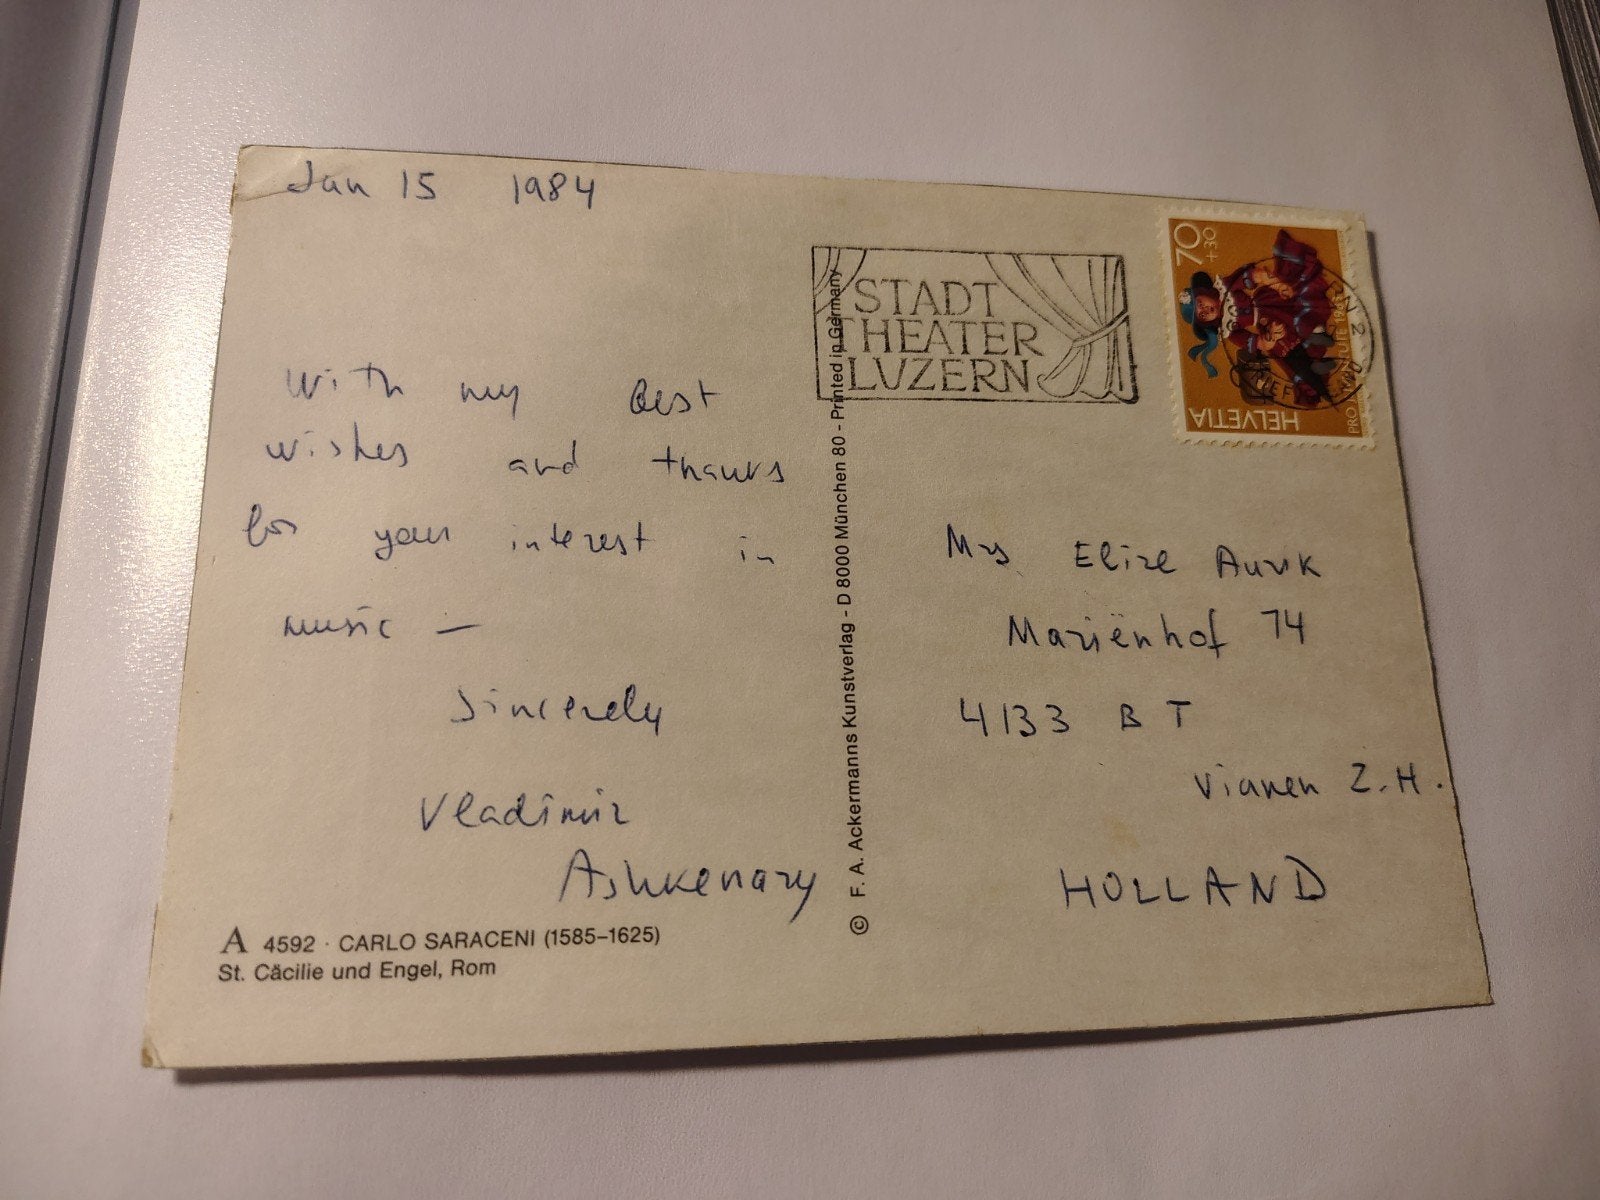 Jan 15 1984
With my best
wishes and thanks
for your interest in
music —
Sincerely
Vladimir
Ashkenazy
A 4592 · CARLO SARACENI (1585–1625)
St. Cäcilie und Engel, Rom
© F. A. Ackermanns Kunstverlag - D 8000 München 80 - Printed in Germany
STADT
THEATER
LUZERN
70
+30
HELVETIA
PRO
Mrs Elize
Mariënhof 74
4133 BT
Vianen Z.H.
HOLLAND